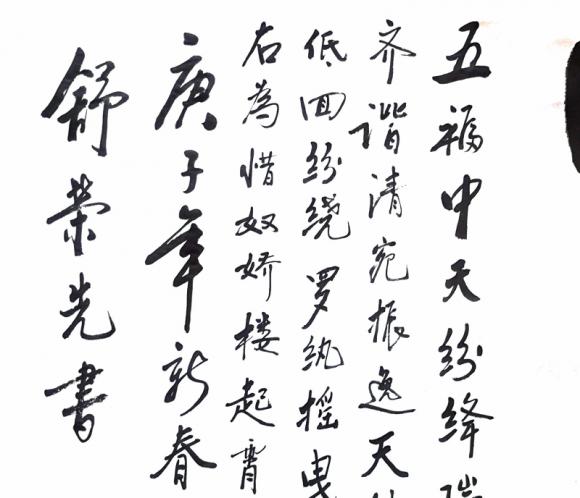 五福中天纷绛
齐谐清宛振逸天
低回纷绕罗纨摇曳
右為惜奴娇楼起霄
庚子年新春
舒荣先書